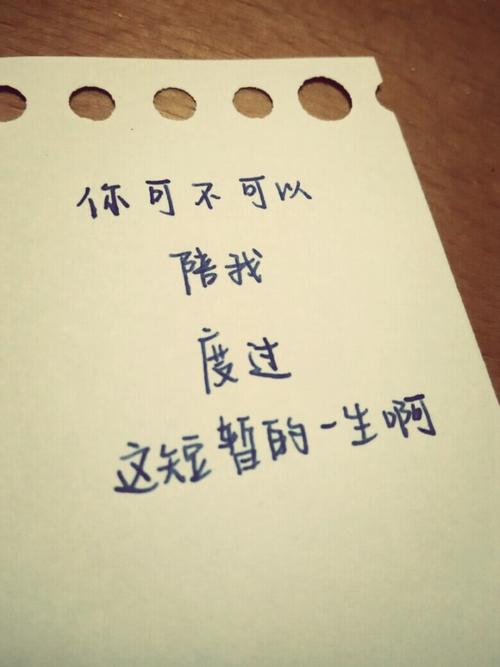 你可不可以
陪我
度过
这短暂的一生啊